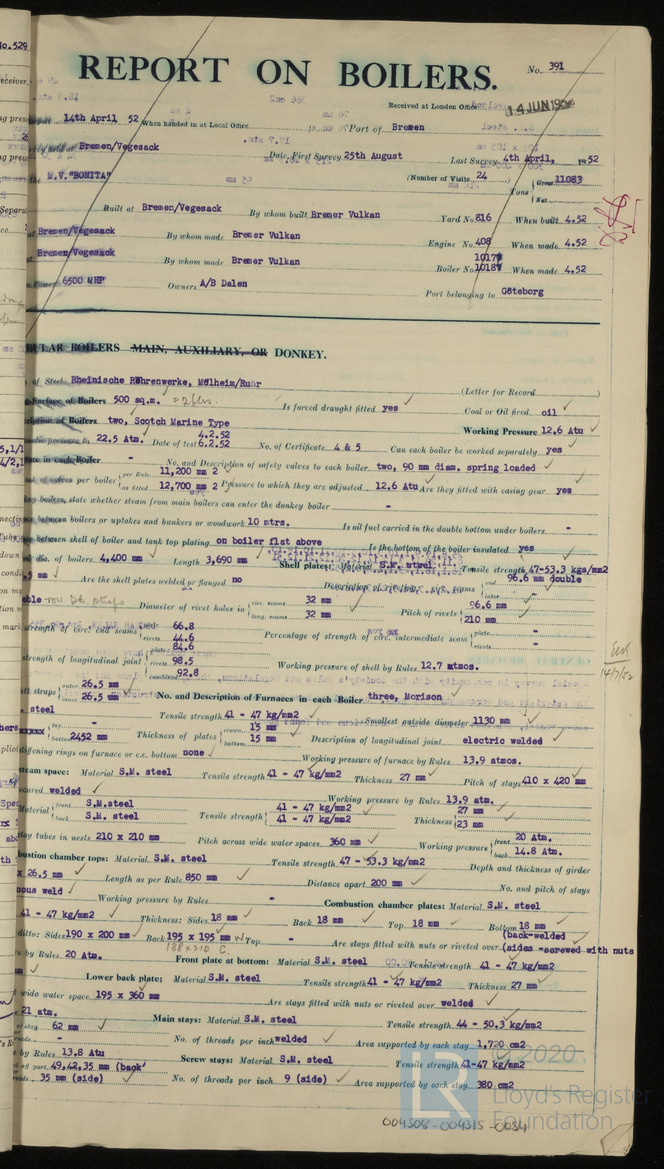 No.529
REPORT ON BOILERS.
No. 391
Received at London Office
14 JUN 195
14th April 52 When handed in at Local Office Port of Bremen
Bremen/Vegesack Date, First Survey 25th August Last Survey 4th April, 1952
M.V."BONITA" (Number of Visits 24
Gross 11083
Tons
Net
Built at Bremen/Vegesack By whom built Bremer Vulkan Yard No. 816 When built 4.52
Bremen/Vegesack By whom made Bremer Vulkan Engine No. 408 When made 4.52
Bremen/Vegesack By whom made Bremer Vulkan Boiler No. 1017 1018 When made 4.52
6500 NHP Owners A/B Dalen Port belonging to Göteborg
BOILERS MAIN, AUXILIARY, OR DONKEY.
of Steel Rheinische Röhrenwerke, Mülheim/Ruhr (Letter for Record )
Surface of Boilers 500 sq.m. Is forced draught fitted yes Coal or Oil fired oil
of Boilers two, Scotch Marine Type Working Pressure 12.6 Atu
pressure to 22.5 Atm. Date of test 4.2.52 6.2.52 No. of Certificate 4 & 5 Can each boiler be worked separately yes
in each Boiler - No. and Description of safety valves to each boiler two, 90 mm diam. spring loaded
of valves per boiler per Rule 11,200 mm 2
as fitted 12,700 mm 2 Pressure to which they are adjusted 12.6 Atu Are they fitted with easing gear yes
boilers, state whether steam from main boilers can enter the donkey boiler -
between boilers or uptakes and bunkers or woodwork 10 mtrs. Is oil fuel carried in the double bottom under boilers -
between shell of boiler and tank top plating on boiler flat above Is the bottom of the boiler insulated yes
dia. of boilers 4,400 mm Length 3,690 mm Shell plates: Material S.M. steel Tensile strength 47-53.3 kgs/mm2
Are the shell plates welded or flanged no Description of riveting: circ. seams end 96.6 mm double
Diameter of rivet holes in circ. seams 32 mm
long. seams 32 mm Pitch of rivets 96.6 mm
210 mm
strength of circ. end seams plate 66.8
rivets 44.6 Percentage of strength of circ. intermediate seam plate -
rivets -
strength of longitudinal joint plate 84.6
rivets 98.5
combined 92.8 Working pressure of shell by Rules 12.7 atmos.
butt straps outer 26.5 mm
inner 26.5 mm No. and Description of Furnaces in each Boiler three, Morison
steel Tensile strength 41 - 47 kg/mm2 Smallest outside diameter 1130 mm
top -
bottom 2452 mm Thickness of plates crown 15 mm
bottom 15 mm Description of longitudinal joint electric welded
stiffening rings on furnace or c.c. bottom none Working pressure of furnace by Rules 13.9 atmos.
steam space: Material S.M. steel Tensile strength 41 - 47 kg/mm2 Thickness 27 mm Pitch of stays 410 x 420 mm
secured welded Working pressure by Rules 13.9 atm.
Material front S.M.steel
back S.M. steel Tensile strength 41 - 47 kg/mm2
41 - 47 kg/mm2 Thickness 27 mm
23 mm
stay tubes in nests 210 x 210 mm Pitch across wide water spaces 360 mm Working pressure front 20 Atm.
back 14.8 Atm.
combustion chamber tops: Material S.M. steel Tensile strength 47 - 53.3 kg/mm2 Depth and thickness of girder
x 26.5 mm Length as per Rule 850 mm Distance apart 200 mm No. and pitch of stays
weld Working pressure by Rules - Combustion chamber plates: Material S.M. steel
41 - 47 kg/mm2 Thickness: Sides 18 mm Back 18 mm Top 18 mm Bottom 18 mm
ditto: Sides 190 x 200 mm Back 195 x 195 mm Top - Are stays fitted with nuts or riveted over (back-welded
(sides -screwed with nuts
by Rules 20 Atm. Front plate at bottom: Material S.M. steel Tensile strength 41 - 47 kg/mm2
Lower back plate: Material S.M. steel Tensile strength 41 - 47 kg/mm2 Thickness 27 mm
wide water space 195 x 360 mm Are stays fitted with nuts or riveted over welded
21 atm. Main stays: Material S.M. steel Tensile strength 44 - 50,3 kg/mm2
stay 62 mm No. of threads per inch welded Area supported by each stay 1,720 cm2
by Rules 13.8 Atu Screw stays: Material S.M. steel Tensile strength 41-47 kg/mm2
off part 49,42,35 mm (back)
35 mm (side) No. of threads per inch 9 (side) Area supported by each stay 380 cm2
© 2020
LR Lloyd's Register
Foundation
004308-004315-0034